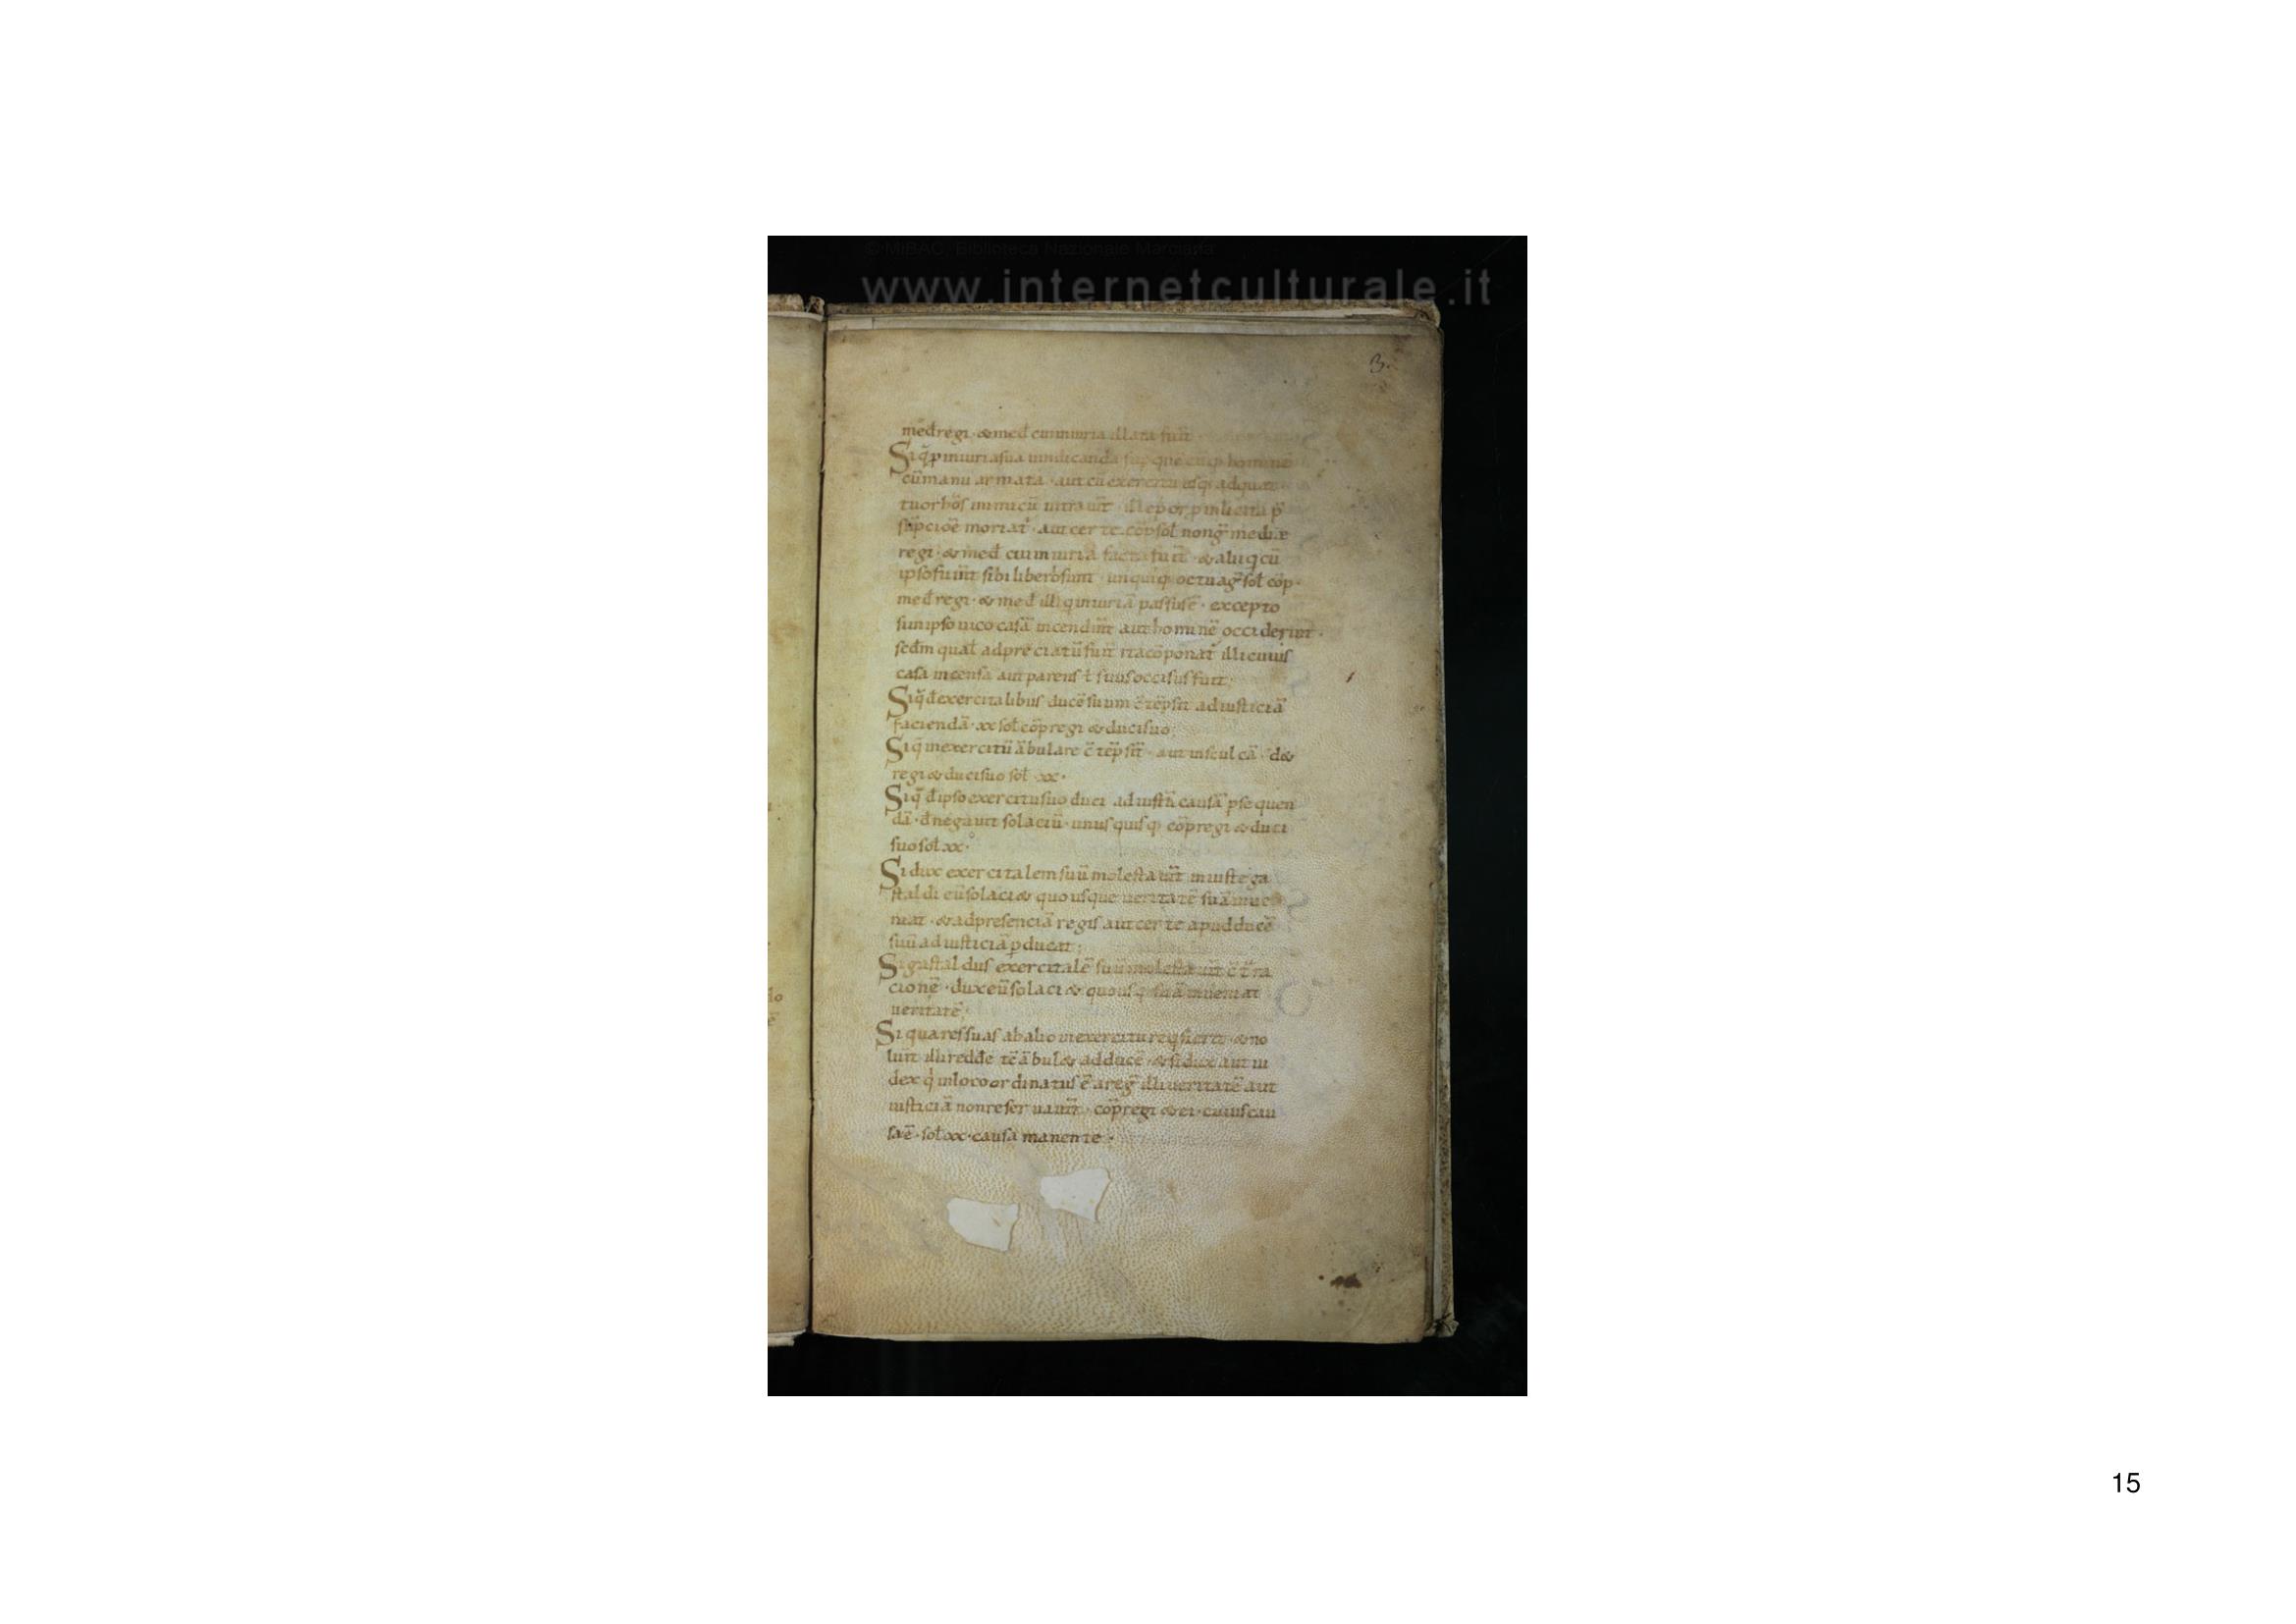 © MiBAC. Biblioteca Nazionale Marciana
www.internetculturale.it
3.
med̄ regi · & med̄ cui iniuria illata fuīt
Siq̄ p iniuria sua uindicanda sup que cūq hominē
cū manu armata · aut cū exercitu usq; ad quat
tuor hōs in uicū intrauīt · ille p̄or p inlicita p̄
sūpcioē moriat̄ · aut certe cōp sol nonḡ mediæ
regi · & med̄ cui iniuriā facta fuīt · & alii q cū
ipso fuīt si liberi sunt unqisq octuaḡ sol cōp ·
med̄ regi · & med̄ illi q iniuriā passus ē · excepto
si in ipso uico casā incendīt aut hominē occiderīt ·
scd̄m qual adpreciatū fuīt ita cōponat̄ illi cuius
casa incensa aut parens ł suus occisus fuīt ;
Siq̄ đ exercitalibus ducē suum c̄tēpsīt ad iusticiā
faciendā · xx sol cōp regi & duci suo ;
Siq̄ in exercitū ābulare c̄tēpsīt · aut in sculcā · d&
regi & duci suo sol xx ·
Siq̄ đ ipso exercitu suo duci ad iustā causā psequen
dā · đnegauīt solaciū · unusquisq cōp regi & duci
suo sol xx ·
Si dux exercitalem suū molestauīt iniuste ga
staldi eū solaci& quousque ueritatē suā inue
niat · & ad presenciā regis aut certe apud ducē
suū ad iusticiā pducat ;
Si gastaldus exercitalē suū molestauīt c̄tra
cionē · dux eū solaci& quousq suā inueniat
ueritatē ;
Si qua res suas ab alio in exercitu reqsierit · & no
luīt illi redđe tē ābul& ad ducē · & si dux aut iu
dex q in loco ordinatus ē a reḡ illi ueritatē aut
iusticiā non reseruauīt · cōp regi & ei · cuius cau
sa ē · sol xx · causa manente ·
15